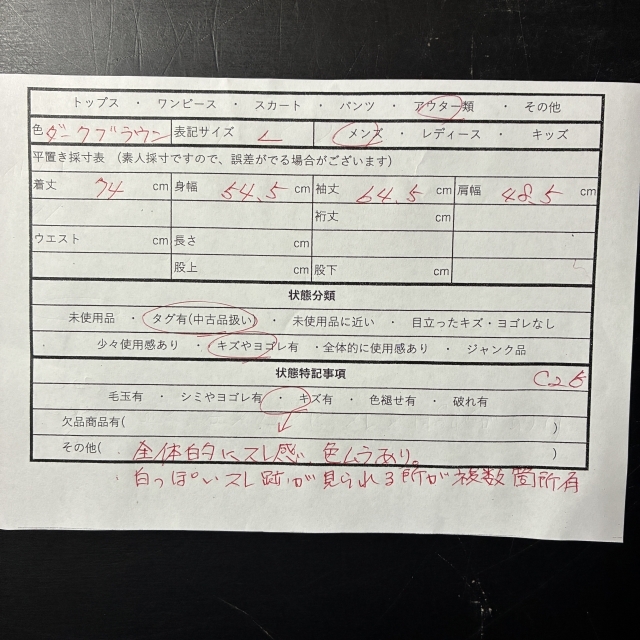 トップス ・ ワンピース ・ スカート ・ パンツ ・ アウター類 ・ その他
色 ダークブラウン 表記サイズ L メンズ ・ レディース ・ キッズ
平置き採寸表 (素人採寸ですので、誤差がでる場合がございます)
着丈 74 cm 身幅 54.5 cm 袖丈 64.5 cm 肩幅 48.5 cm
裄丈 cm
ウエスト cm 長さ cm
股上 cm 股下 cm
状態分類
未使用品 ・ タグ有(中古品扱い) ・ 未使用品に近い ・ 目立ったキズ・ヨゴレなし
少々使用感あり ・ キズやヨゴレ有 ・全体的に使用感あり ・ ジャンク品
状態特記事項 C26
毛玉有 ・ シミやヨゴレ有 ・ キズ有 ・ 色褪せ有 ・ 破れ有
欠品商品有( )
その他( 全体的にスレ感 色ムラあり。 )
白っぽいスレ跡が見られる所が複数箇所有